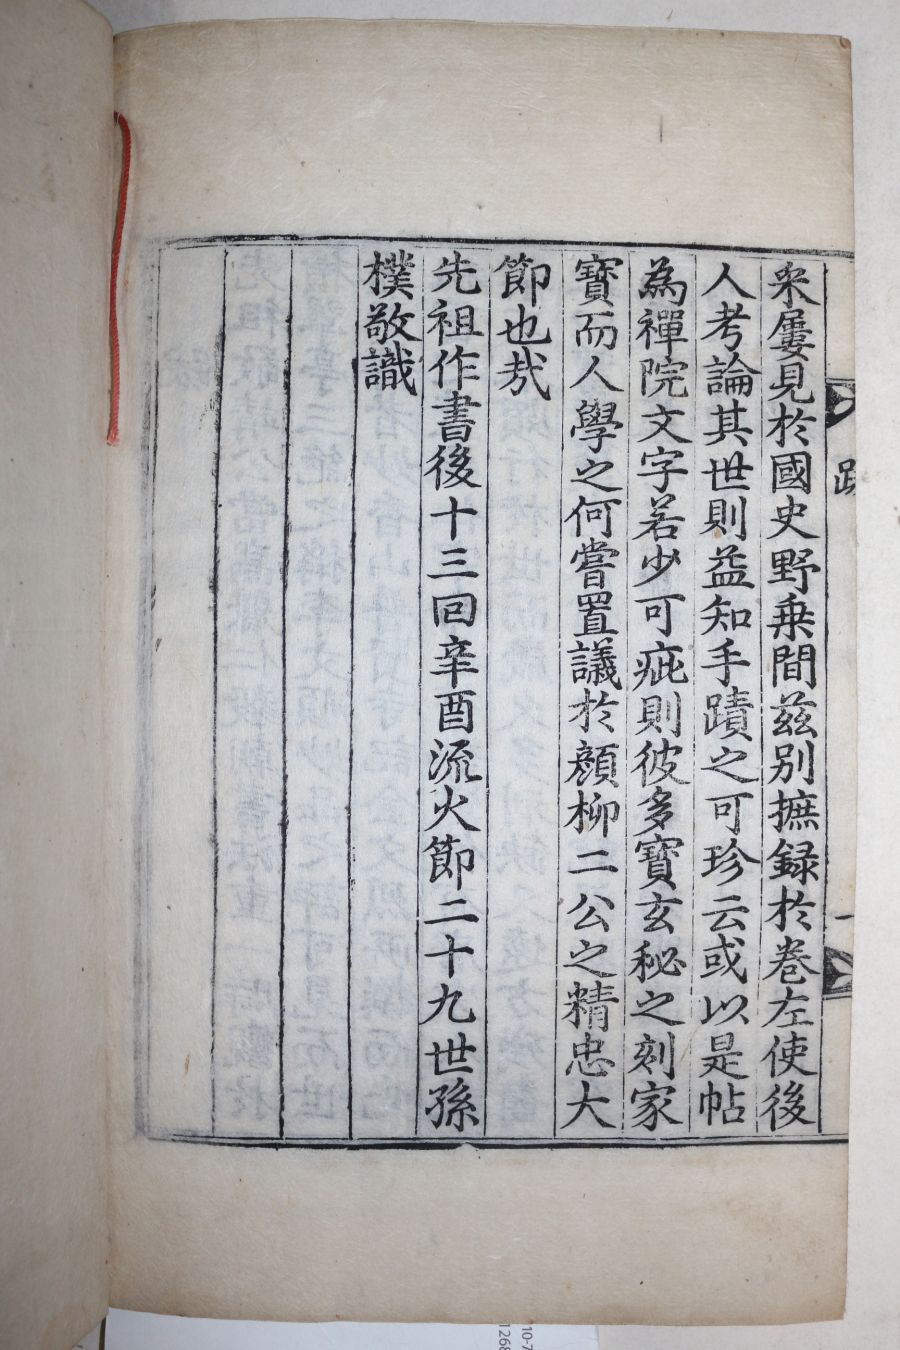 跋
一
采屢見於國史野乗間茲别摭録於巻左使後
人考論其世則益知手蹟之可珍云或以是帖
為禪院文字若少可疵則彼多寶玄秘之刻家
寶而人學之何嘗置議於顔柳二公之精忠大
節也㢤
先祖作書後十三回辛酉流火節二十九世孫
樸敬識
10-7
1268